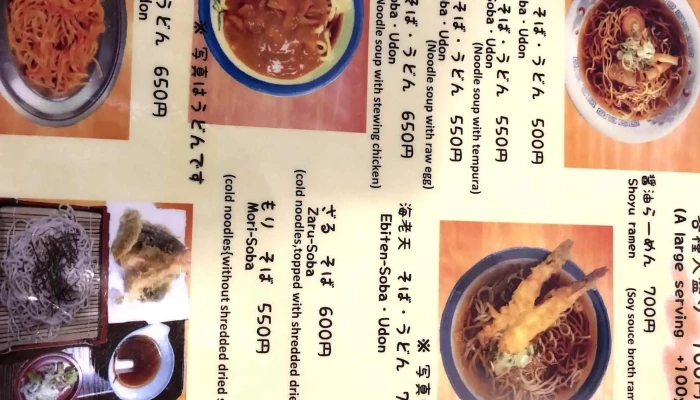 (A large serving +100
醤油らーめん 700円
Shoyu ramen (Soy souce broth ram
そば・うどん 500円
ba・Udon
そば・うどん 550円
oba・Udon (Noodle soup with tempura)
そば・うどん 550円
ba・Udon (Noodle soup with raw egg)
そば・うどん 650円
oba・Udon (Noodle soup with stewing chicken)
※ 写真
海老天 そば・うどん 7
Ebiten-Soba・Udon
※ 写真はうどんです
ざる そば 600円
Zaru-Soba
(cold noodles,topped with shredded drie
もり そば 550円
Mori-Soba
(cold noodles(without shredded dried s
うどん 650円
don